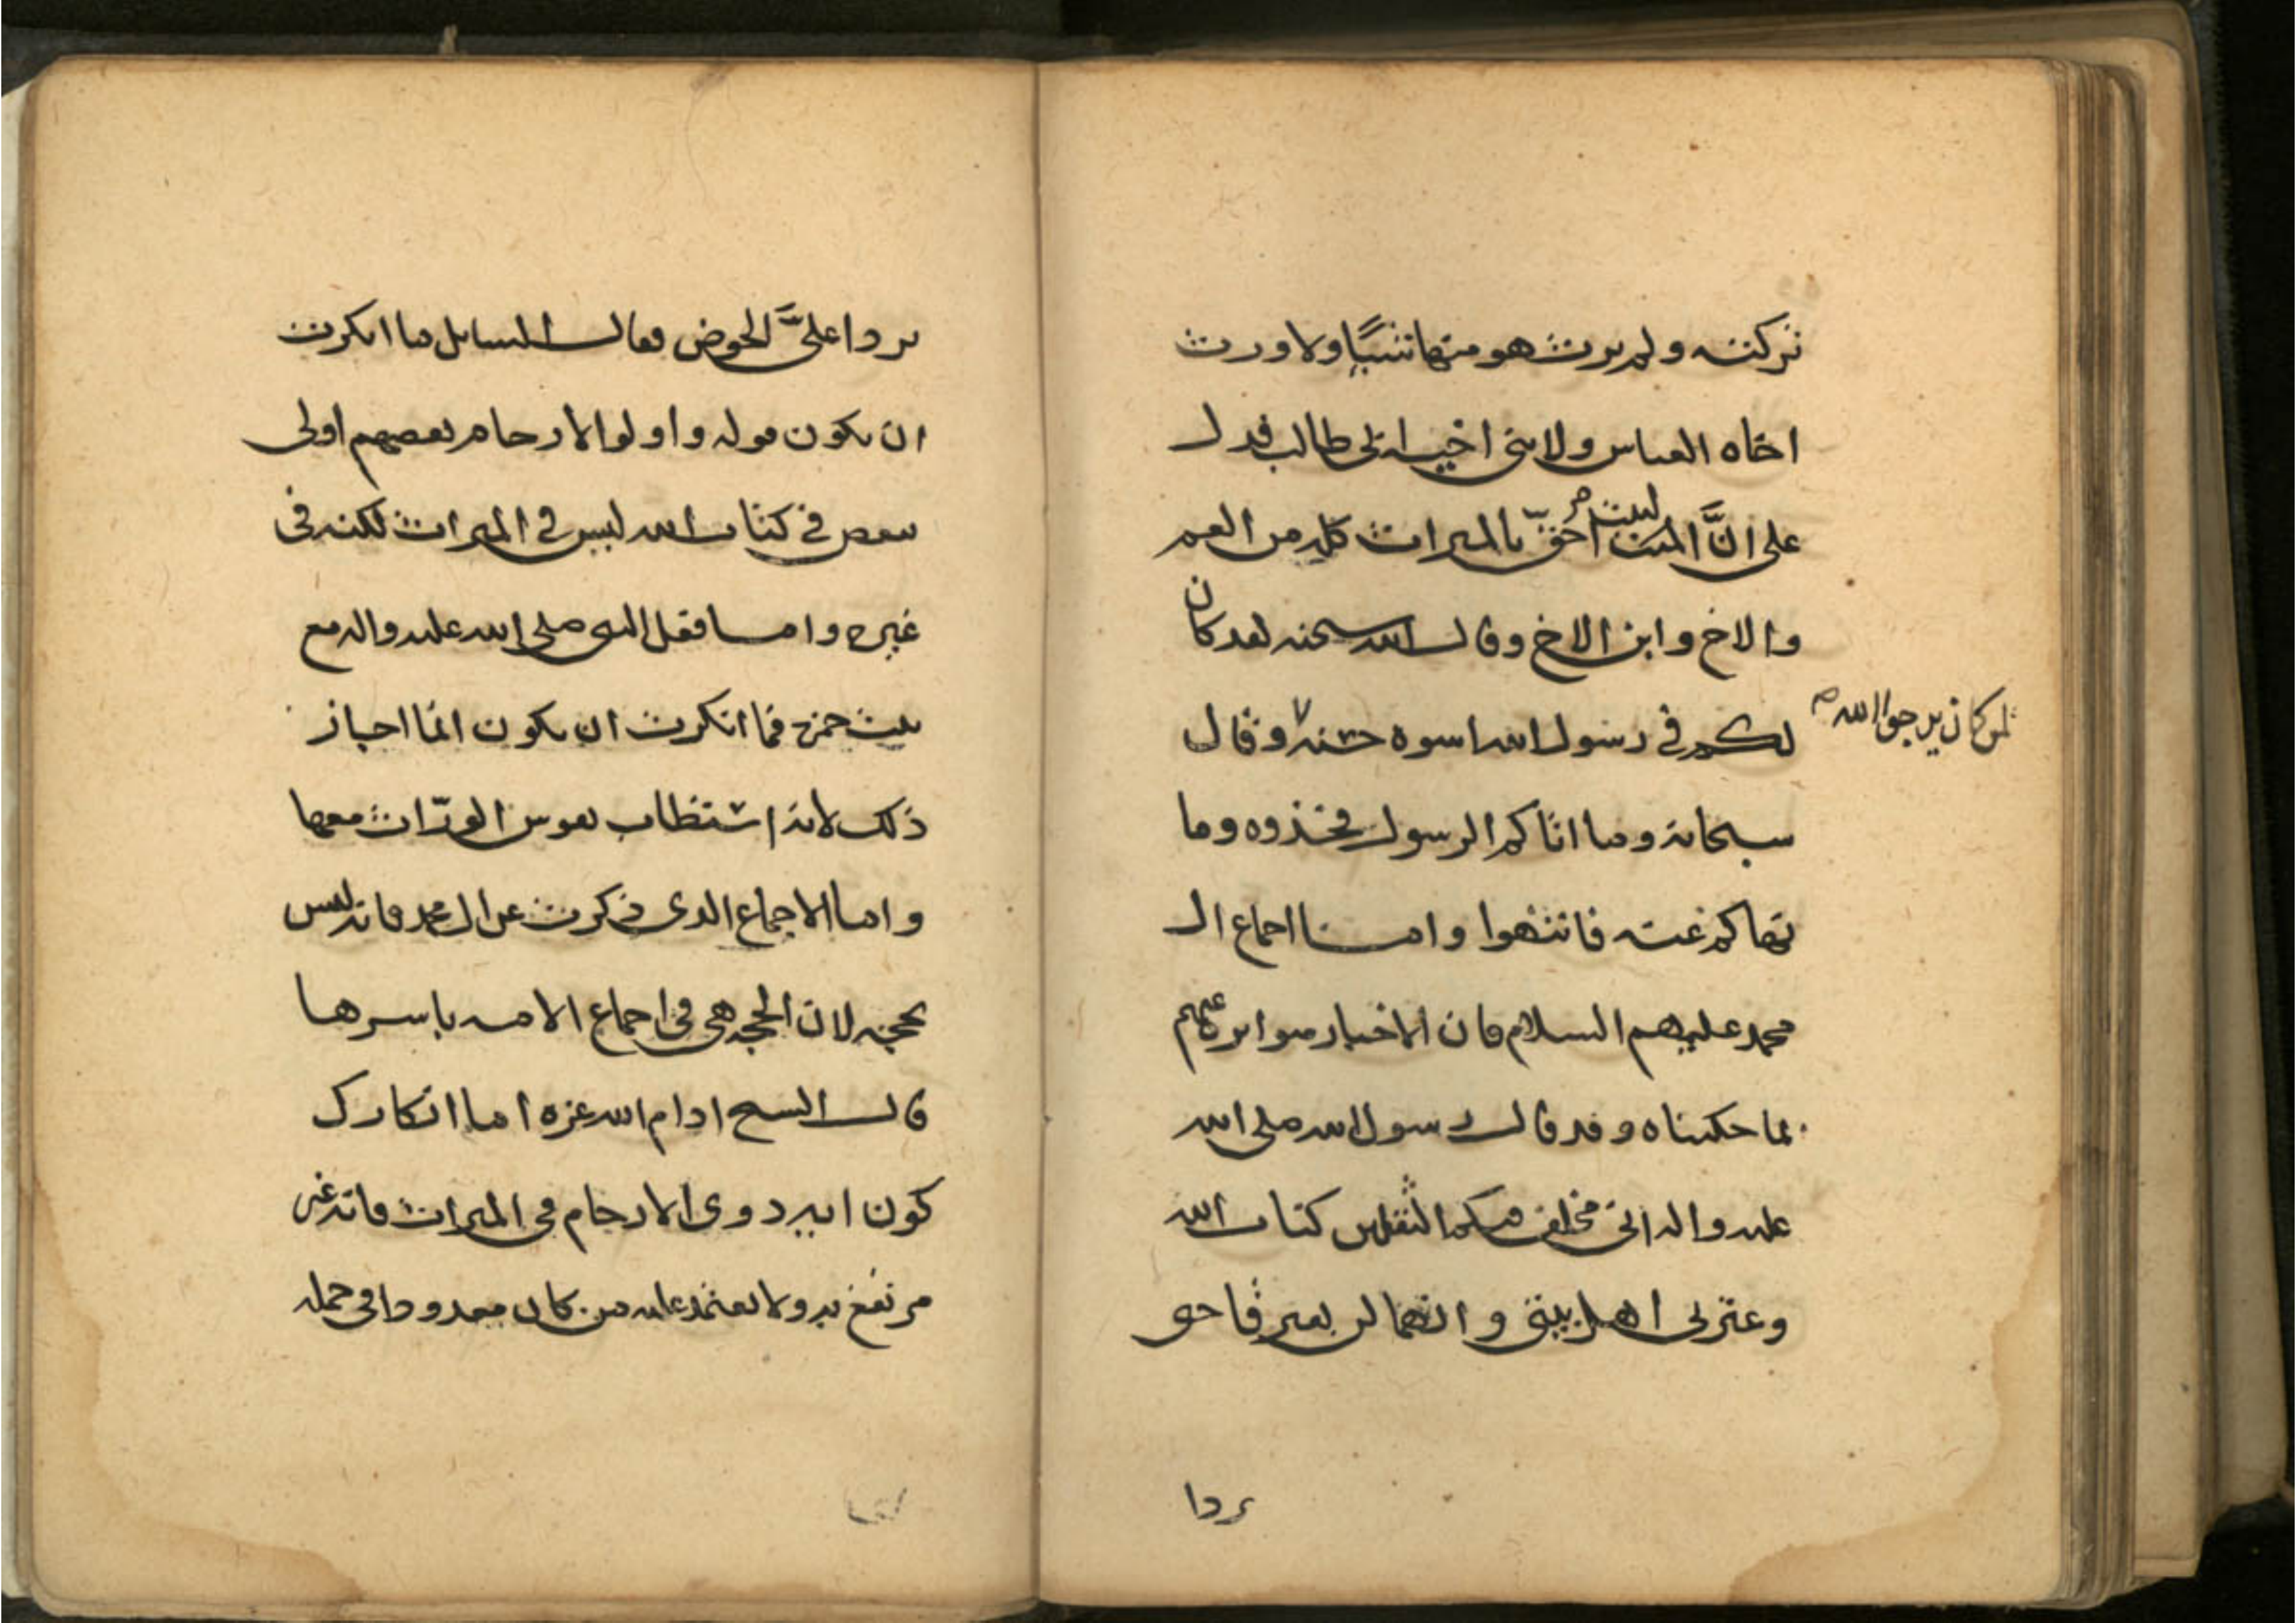 تركته ولم يرث هو منها شيئًا ولا ورث
اخاه العباس ولا بنى اخيه ابى طالب فدل
على انَّ البنت احقّ بالميراث كله من العم
والاخ وابن الاخ وقال الله سبحنه لقد كان
لكم في رسول الله اسوه حسنه وقال
لمن كان يرجوا الله
سبحانه وما اتاكم الرسول فخذوه وما
نهاكم عنه فانتهوا واما اجماع ال
محمد عليهم السلام فان الاخبار متواتر عنهم
بما حكيناه وقد قال رسول الله صلى الله
عليه واله انى مخلف فيكم الثقلين كتاب الله
وعترتى اهل بيتى وانهما لن يفترقا حتى
يردا
يردا علىَّ الحوض فقال السايل ما انكرت
ان يكون قوله واولوا الارحام بعضهم اولى
ببعض في كتاب الله ليس في الميراث لكنه فى
غيره واما فعل النبي صلى الله عليه واله مع
بنت حمزه فما انكرت ان يكون انما احياز
ذلك لانه استطاب نفوس الورّاث معها
واما الاجماع الذى ذكرت عن ال محمد فانه ليس
بحجه لان الحجه هى فى اجماع الامه باسرها
قال الشيخ ادام الله عزه اما انكارك
كون ايه ذوى الارحام فى الميراث فانه غير
مرتفع به ولا يعتمد عليه من كان معدودا فى جمله